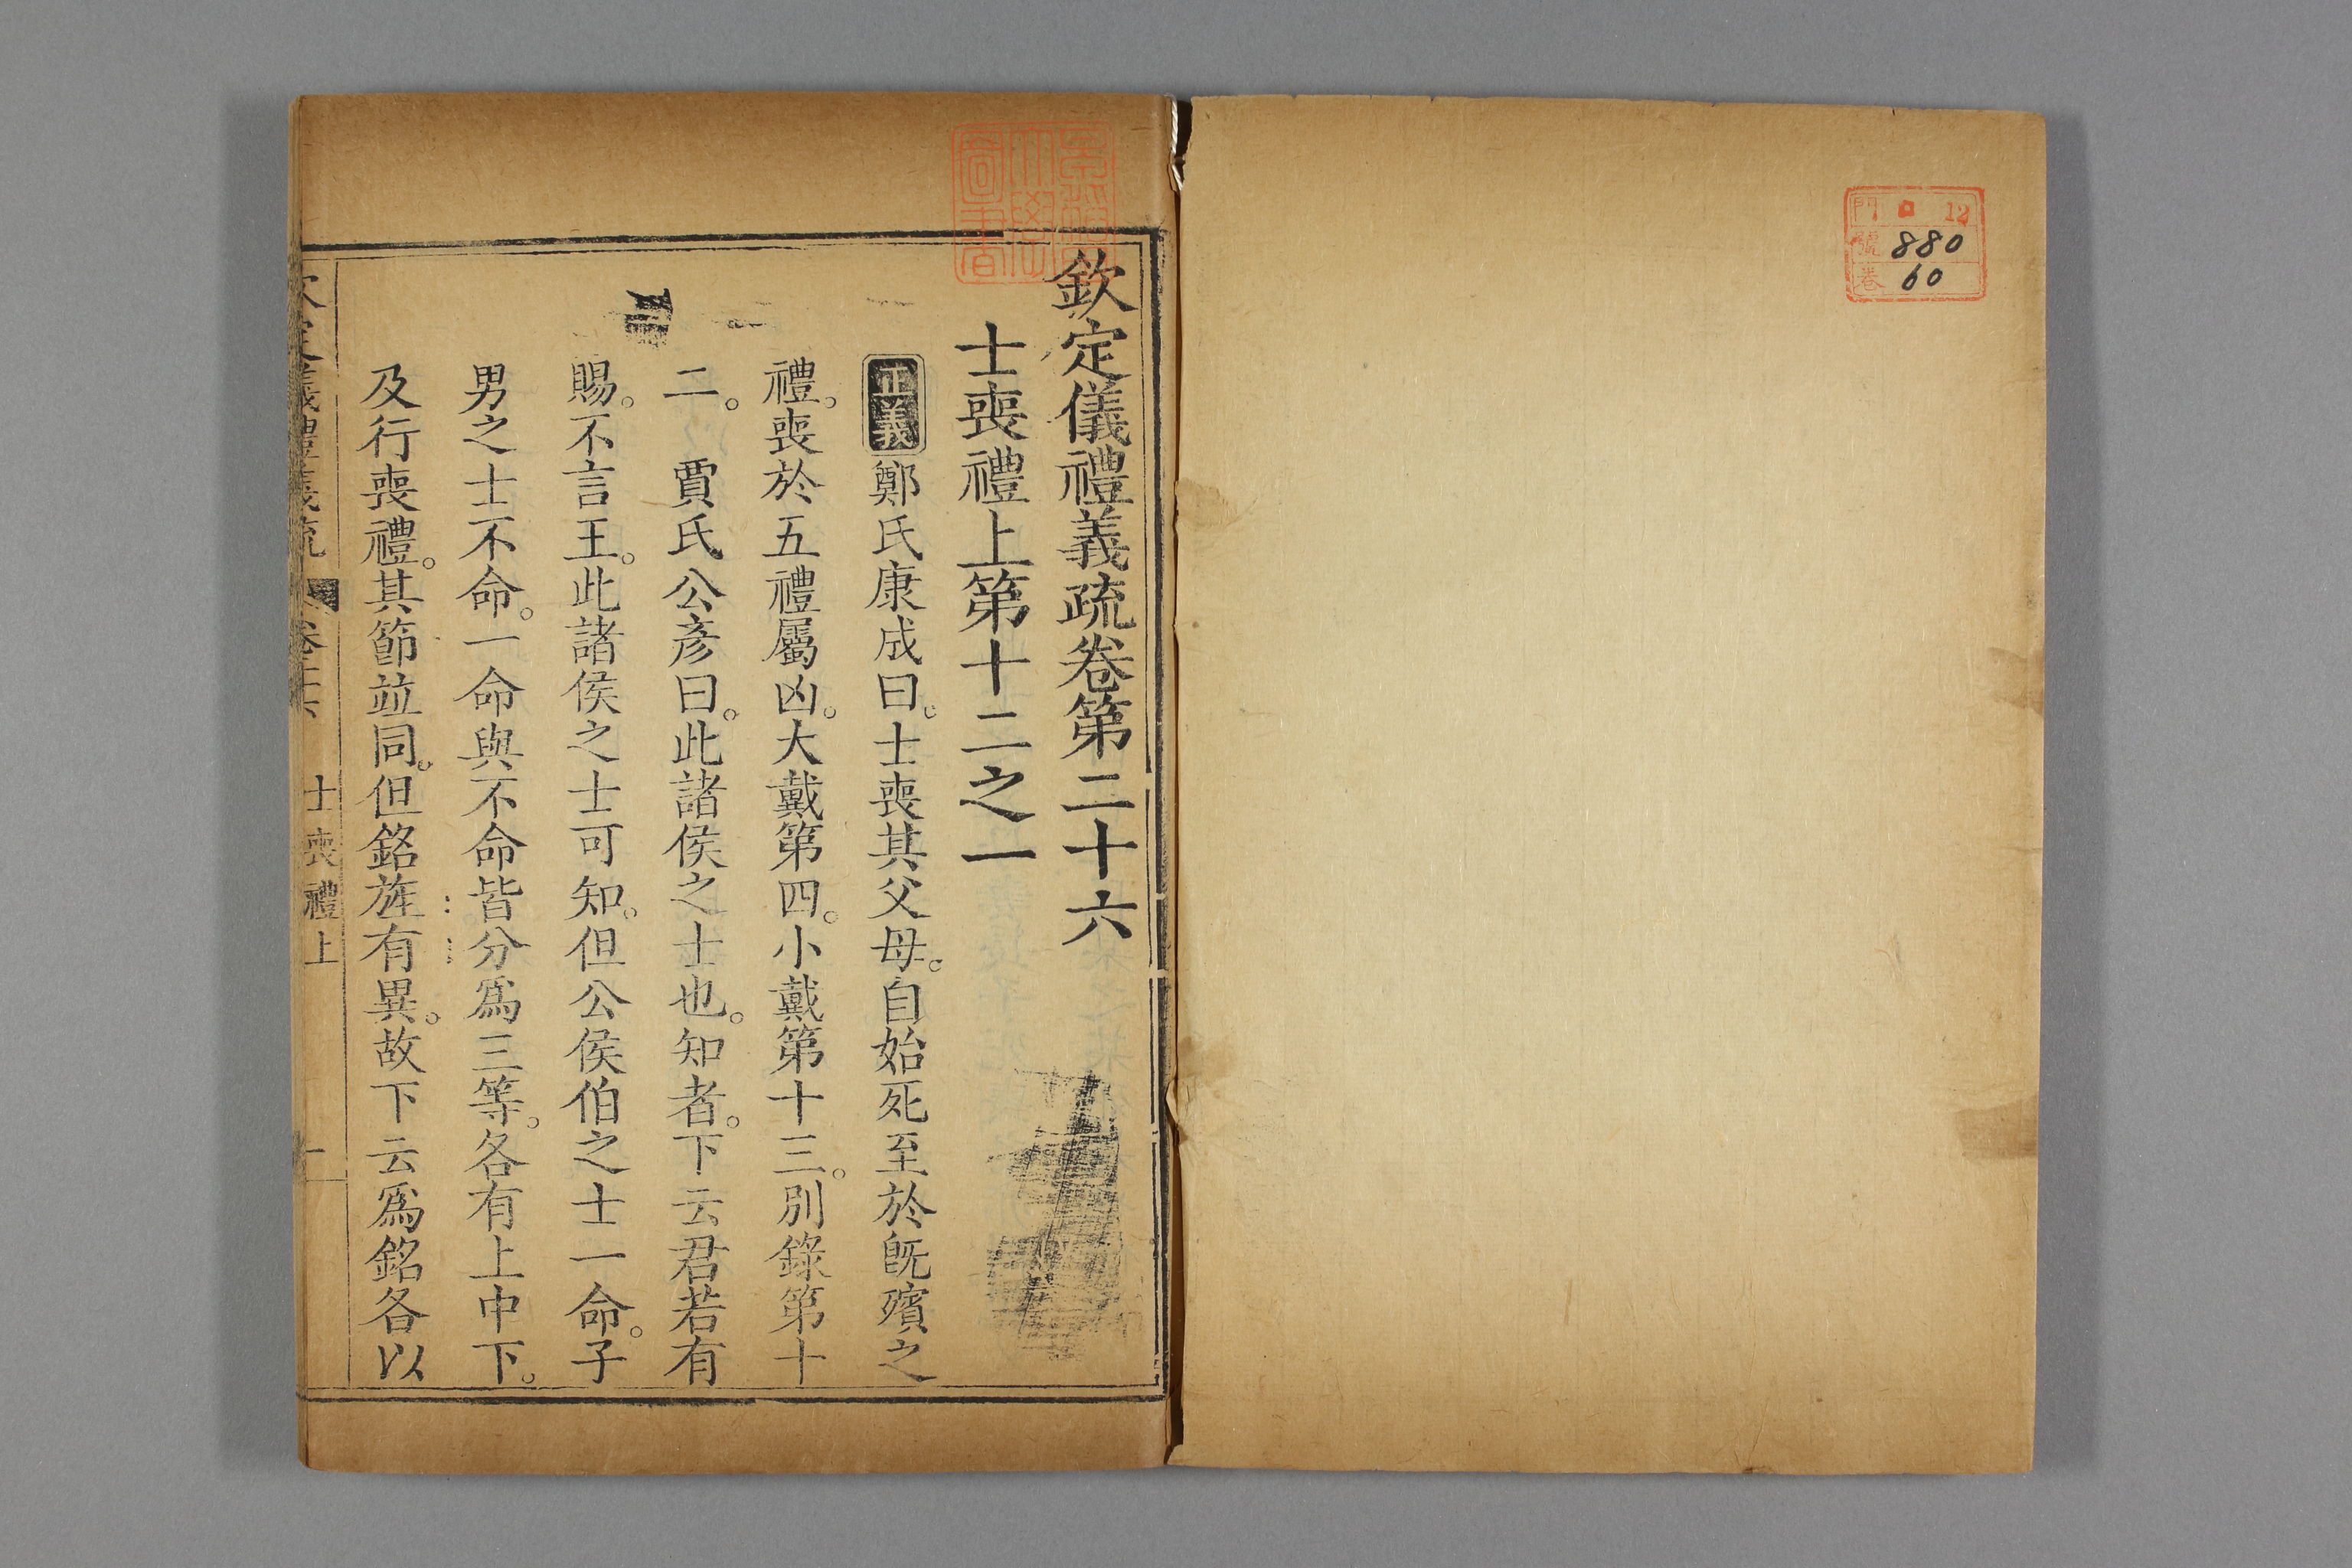 門 口 12
號 880
卷 60
欽定儀禮義疏卷第二十六
士喪禮上第十二之一
正義鄭氏康成曰。士喪其父母。自始死至於旣殯之
禮。喪於五禮屬凶。大戴第四。小戴第十三。別錄第十
二。 賈氏公彥曰。此諸侯之士也。知者。下云君若有
賜。不言王。此諸侯之士可知。但公侯伯之士一命。子
男之士不命。一命與不命皆分爲三等。各有上中下。
及行喪禮。其節竝同。但銘旌有異。故下云爲銘各以
欽定儀禮義疏 卷二十六 士喪禮上 一
早稻田大學圖書